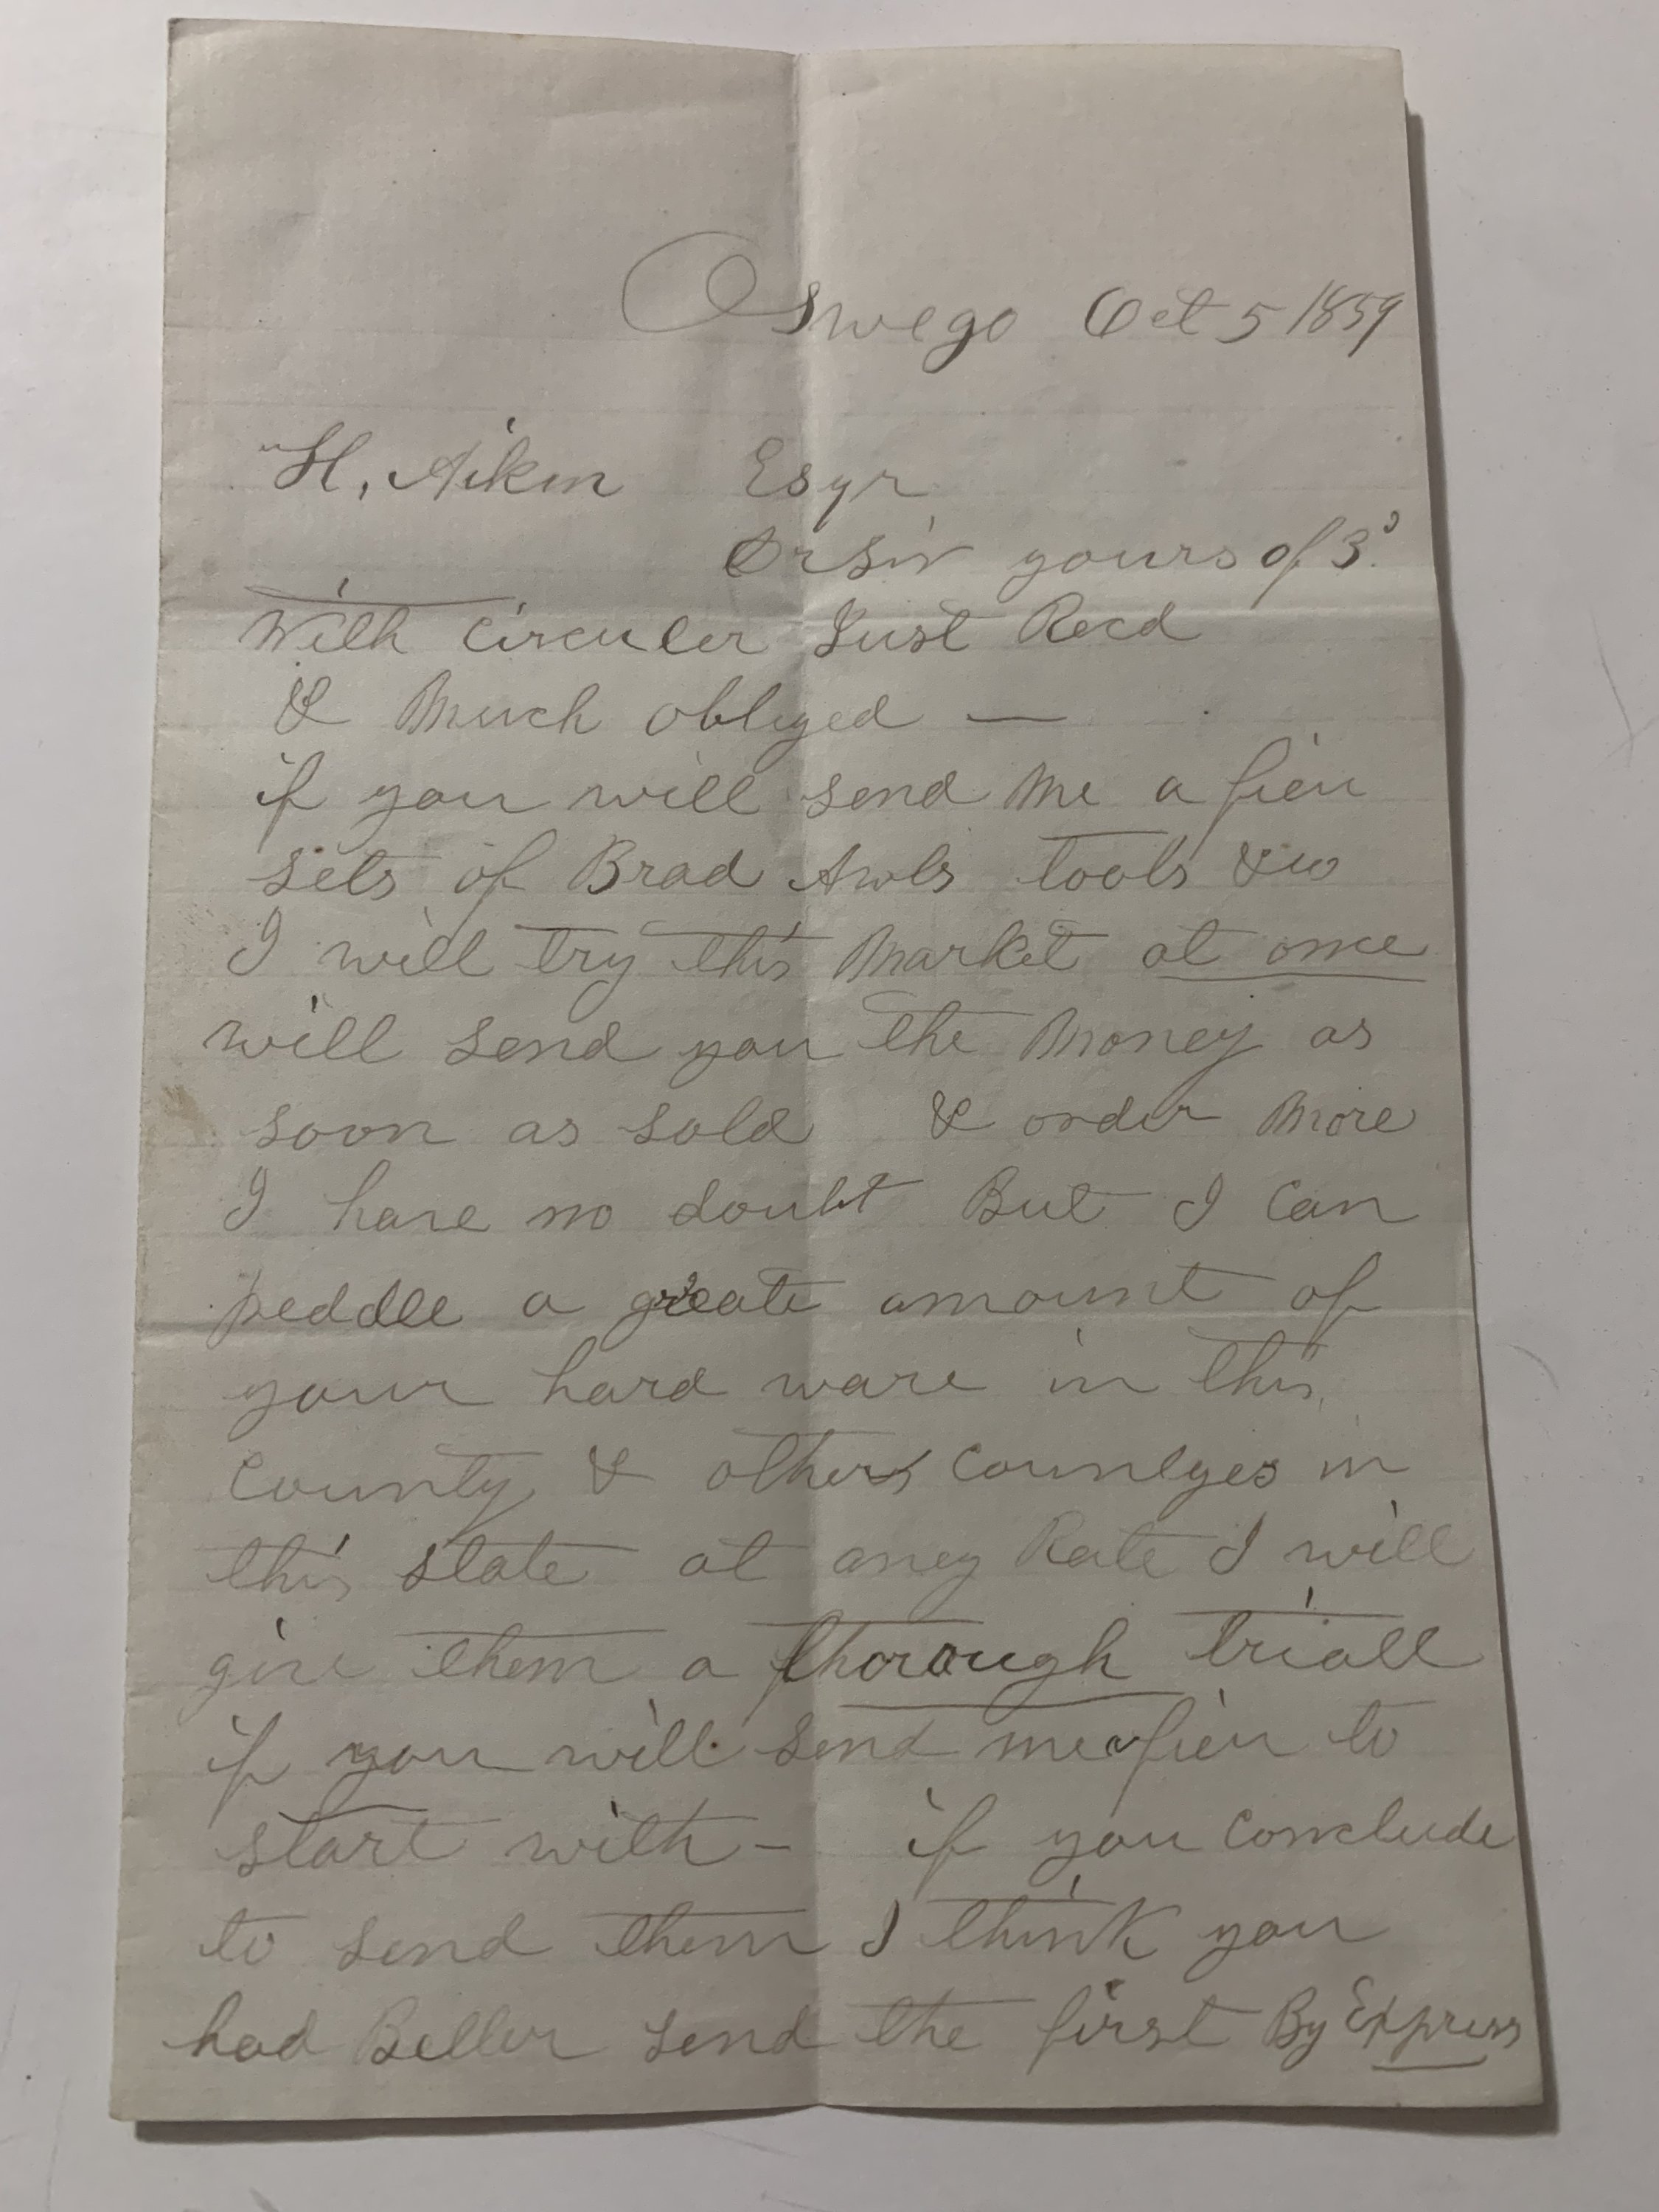 Oswego Oct 5 1859
H. Aiken Esqr
Dr Sir yours of 3d
With circuler Just Recd
& Much obliged —
if you will send Me a fieu
sets of Brad Awls tools &c
I will try this Market at once
will send you the Money as
soon as sold & order More
I have no doubt But I Can
peddle a greate amount of
your hard ware in this
County & others Countyes in
this state at aney Rate I will
give them a thorough triall
if you will send me a fieu to
start with - if you Conclude
to send them I think you
had Better send the first By Express